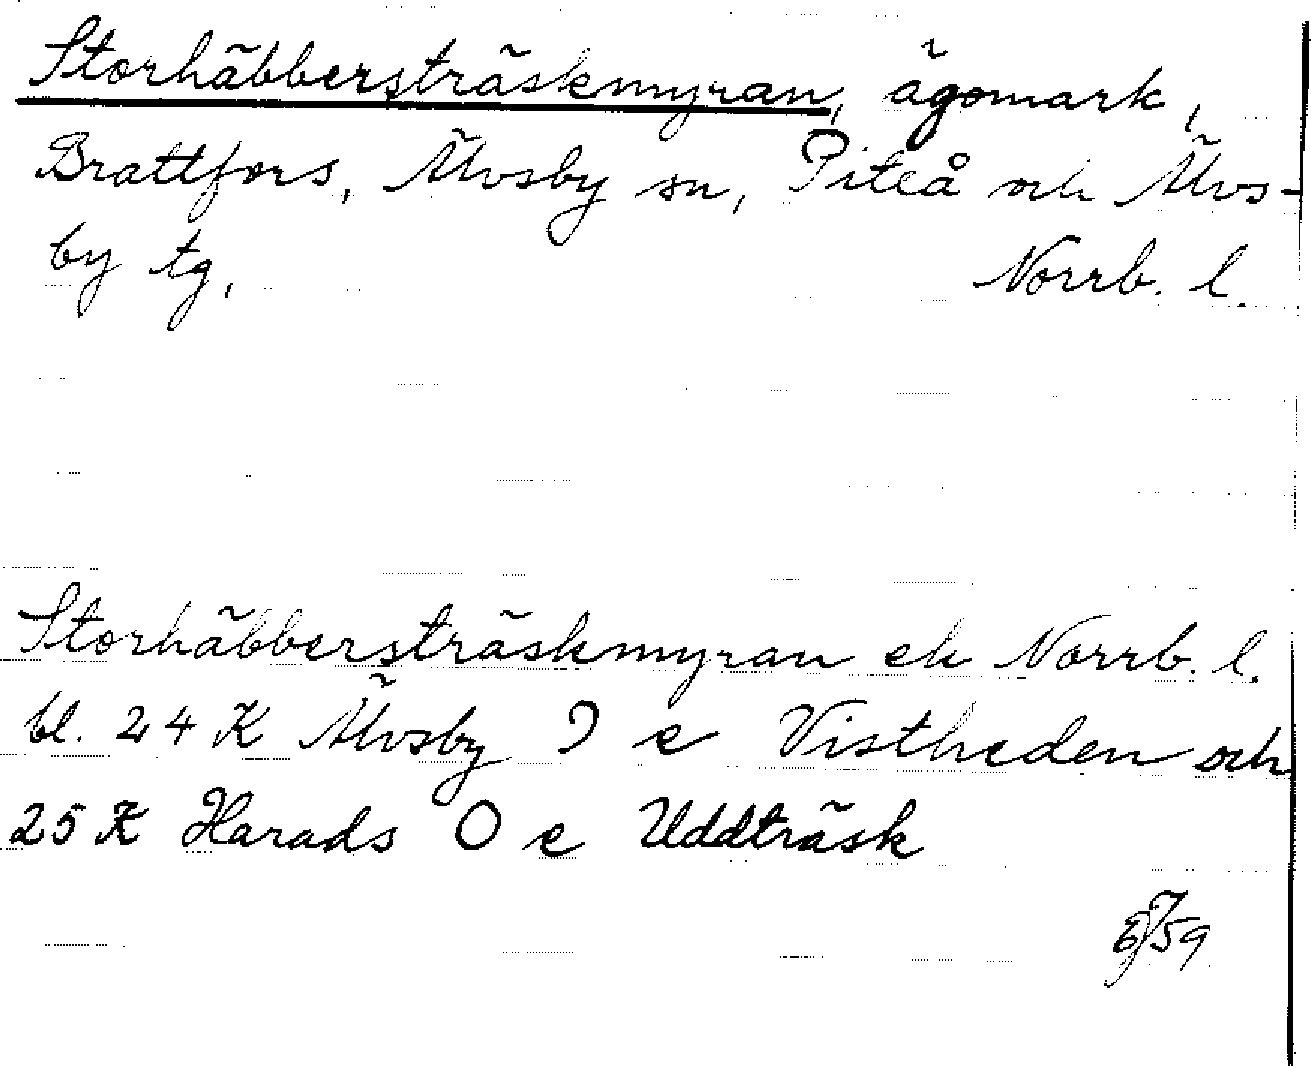 Storhäbbersträskmyran, ägomark,
Brattfors, Älvsby sn, Piteå och Älvs-
by tg,
Norrb. l.
Storhäbbersträskmyran ek Norrb. l.
bl. 24 K Älvsby J e Vistheden och
25 K Harads O e Uddträsk